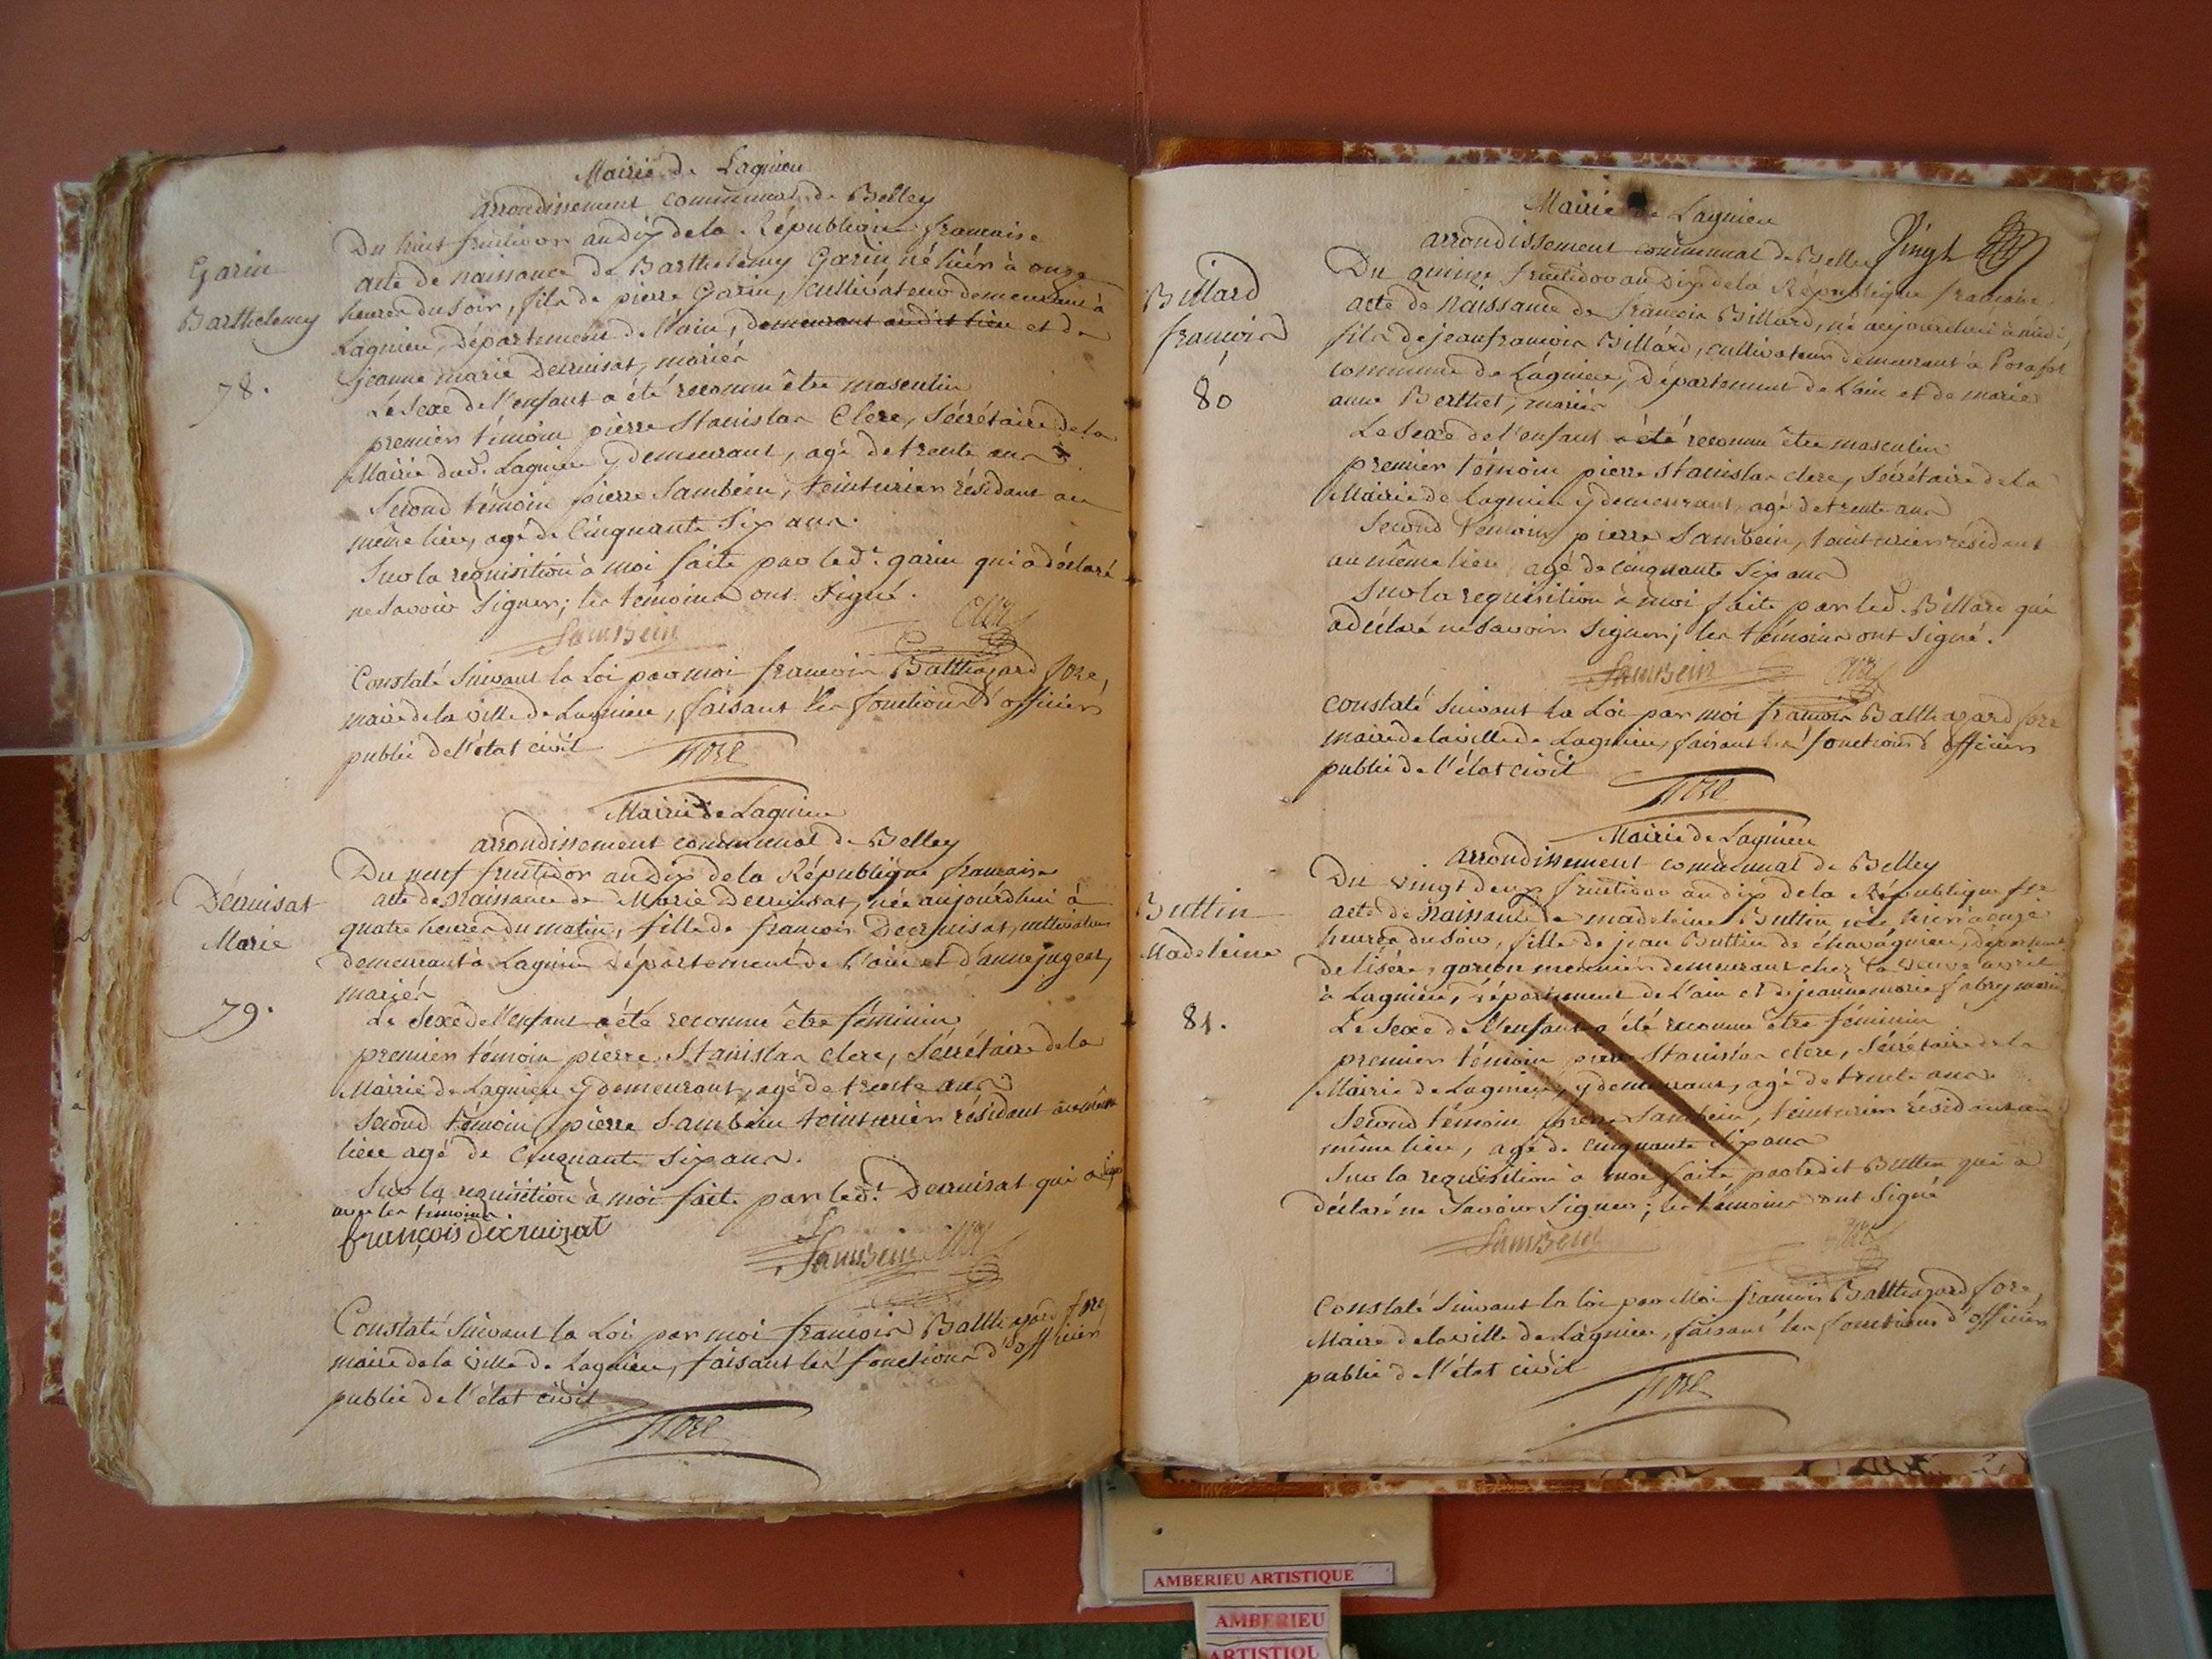 Mairie de Lagnieu
arrondissement communal de Belley
Garin
Barthelemy
78.
Du huit fructidor an Dix de la République francaise
acte de naissance de Barthelemy Garin, né hier à onze
heures du soir, fils de pierre Garin, cultivateur demeurant à
Lagnieu, Département de l'ain, demeurant audit lieu et de
jeanne marie Decruisat, mariés
Le Sexe de l'enfant a été reconnu être masculin
premier témoin pierre Stanislas Clerc, Sécrétaire de la
Mairie dud. Lagnieu y demeurant, agé de trente ans
Second témoin pierre Sambein, teinturier résidant au
même lieu, agé de Cinquante Six ans.
Sur la requisition à moi faite par led. garin qui a déclaré
ne Savoir Signer; les témoins ont Signé.
Sambein Clerc
Constaté Suivant la Loi par moi francois Balthazard fore,
maire de la ville de Lagnieu, faisant les fonctions d'officier
public de l'état civil
fore
Mairie de Lagnieu
arrondissement communal de Belley
Décruisat
Marie
79.
Du neuf fructidor an Dix de la République francaise
acte de Naissance de Marie Decruisat, née aujourdhui à
quatre heures du matin, fille de francois Decruisat, cultivateur
demeurant à Lagnieu Département de l'ain et d'anne jugeat,
mariés
Le Sexe de l'enfant a été reconnu être féminin
premier témoin pierre Stanislas clerc, Sécrétaire de la
Mairie de Lagnieu y demeurant, agé de trente ans
Second témoin pierre Sambein teinturier résidant au même
lieu agé de Cinquante Six ans.
Sur la requisition à moi faite par led. Decruisat qui a signé
avec les témoins
françois decruizat
Sambein Clerc
Constaté Suivant la Loi par moi francois Balthazard fore
maire de la ville de Lagnieu, faisant les fonctions d'officier
public de l'état civil
fore
Mairie de Lagnieu
arrondissement communal de Belley
Vingt
Billard
francois
80
Du quinze fructidor an Dix de la République francaise
acte de Naissance de francois Billard, né aujourdhui à midi,
fils de jean francois Billard, cultivateur demeurant à Posafol
commune de Lagnieu, Département de l'ain et de marie
anne Berthet, mariés
Le Sexe de l'enfant a été reconnu être masculin
premier témoin pierre Stanislas clerc, Sécrétaire de la
Mairie de Lagnieu y demeurant, agé de trente ans
Second témoin pierre Sambein, teinturier résidant
au même lieu agé de cinquante Six ans
Sur la requisition à moi faite par led. Billard qui
a déclaré ne Savoir Signer; les témoins ont Signé.
Sambein Clerc
constaté Suivant la Loi par moi francois Balthazard fore
maire de la ville de Lagnieu, faisant les fonctions d'officier
public de l'état civil
fore
Mairie de Lagnieu
arrondissement communal de Belley
Buttin
Madeleine
81.
Du vingt deux fructidor an dix de la République fse
acte de Naissance de madeleine Buttin née hier à onze
heures du Soir, fille de jean Buttin de chavagnieu, Département
de lisére, garcon meunier demeurant chez la veuve
à Lagnieu, Département de l'ain et de jeanne marie fabry mariés
Le Sexe de l'enfant a été reconnu être féminin
premier témoin pierre Stanislas clerc, Sécrétaire de la
Mairie de Lagnieu, y demeurant, agé de trente ans
Second témoin pierre Sambein, teinturier résidant au
même lieu, agé de cinquante Six ans
Sur la requisition à moi faite par ledit Buttin qui a
déclaré ne Savoir Signer; les témoins ont Signé
Sambein Clerc
Constaté Suivant la loi par Moi francois Balthazard fore,
Maire de la ville de Lagnieu, faisant les fonctions d'officier
public de l'état civil
fore
AMBERIEU ARTISTIQUE
AMBERIEU
ARTISTIQU